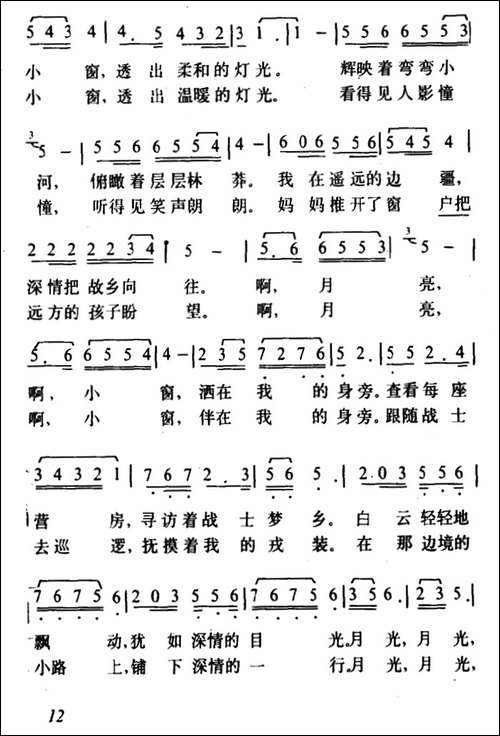 5 4 3 4 | 4. 5 4 3 2 3 | 1. | 1 - | 5 5 6 6 5 5 3 |
小 窗,透 出 柔和的灯 光。 辉映着弯弯小
小 窗,透 出 温暖的灯 光。 看得见人影憧
3 5 - | 5 5 6 6 5 5 4 | 4 - | 6 0 6 5 5 6 | 5 4 5 4 |
河, 俯瞰着层层林 莽。我 在遥远的边 疆,
憧, 听得见笑声朗 朗。妈 妈推开了窗 户把
2 2 2 2 2 3 4 | 5 - | 5. 6 6 5 5 3 | 3 5 - |
深情把故乡向 往。 啊, 月 亮,
远方的孩子盼 望。 啊, 月 亮,
5. 6 6 5 5 4 | 4 - | 2 3 5 7 2 7 6 | 5 2. | 5 5 2. 4 |
啊, 小 窗,洒在 我 的身旁。查看每座
啊, 小 窗,伴在 我 的身旁。跟随战士
3 4 3 2 1 | 7 6 7 2. 3 | 5 6 5. | 2 0 3 5 5 6 |
营 房,寻访着战 士梦 乡。白 云轻轻地
去巡 逻,抚摸着我 的戎 装。在 那边境的
7 6 7 5 6 | 2 0 3 5 5 6 | 7 6 7 5 6 | 3 5 6. | 2 3 5. |
飘 动,犹 如深情的目 光。月 光,月 光,
小路 上,铺 下深情的一 行。月 光,月 光,
12